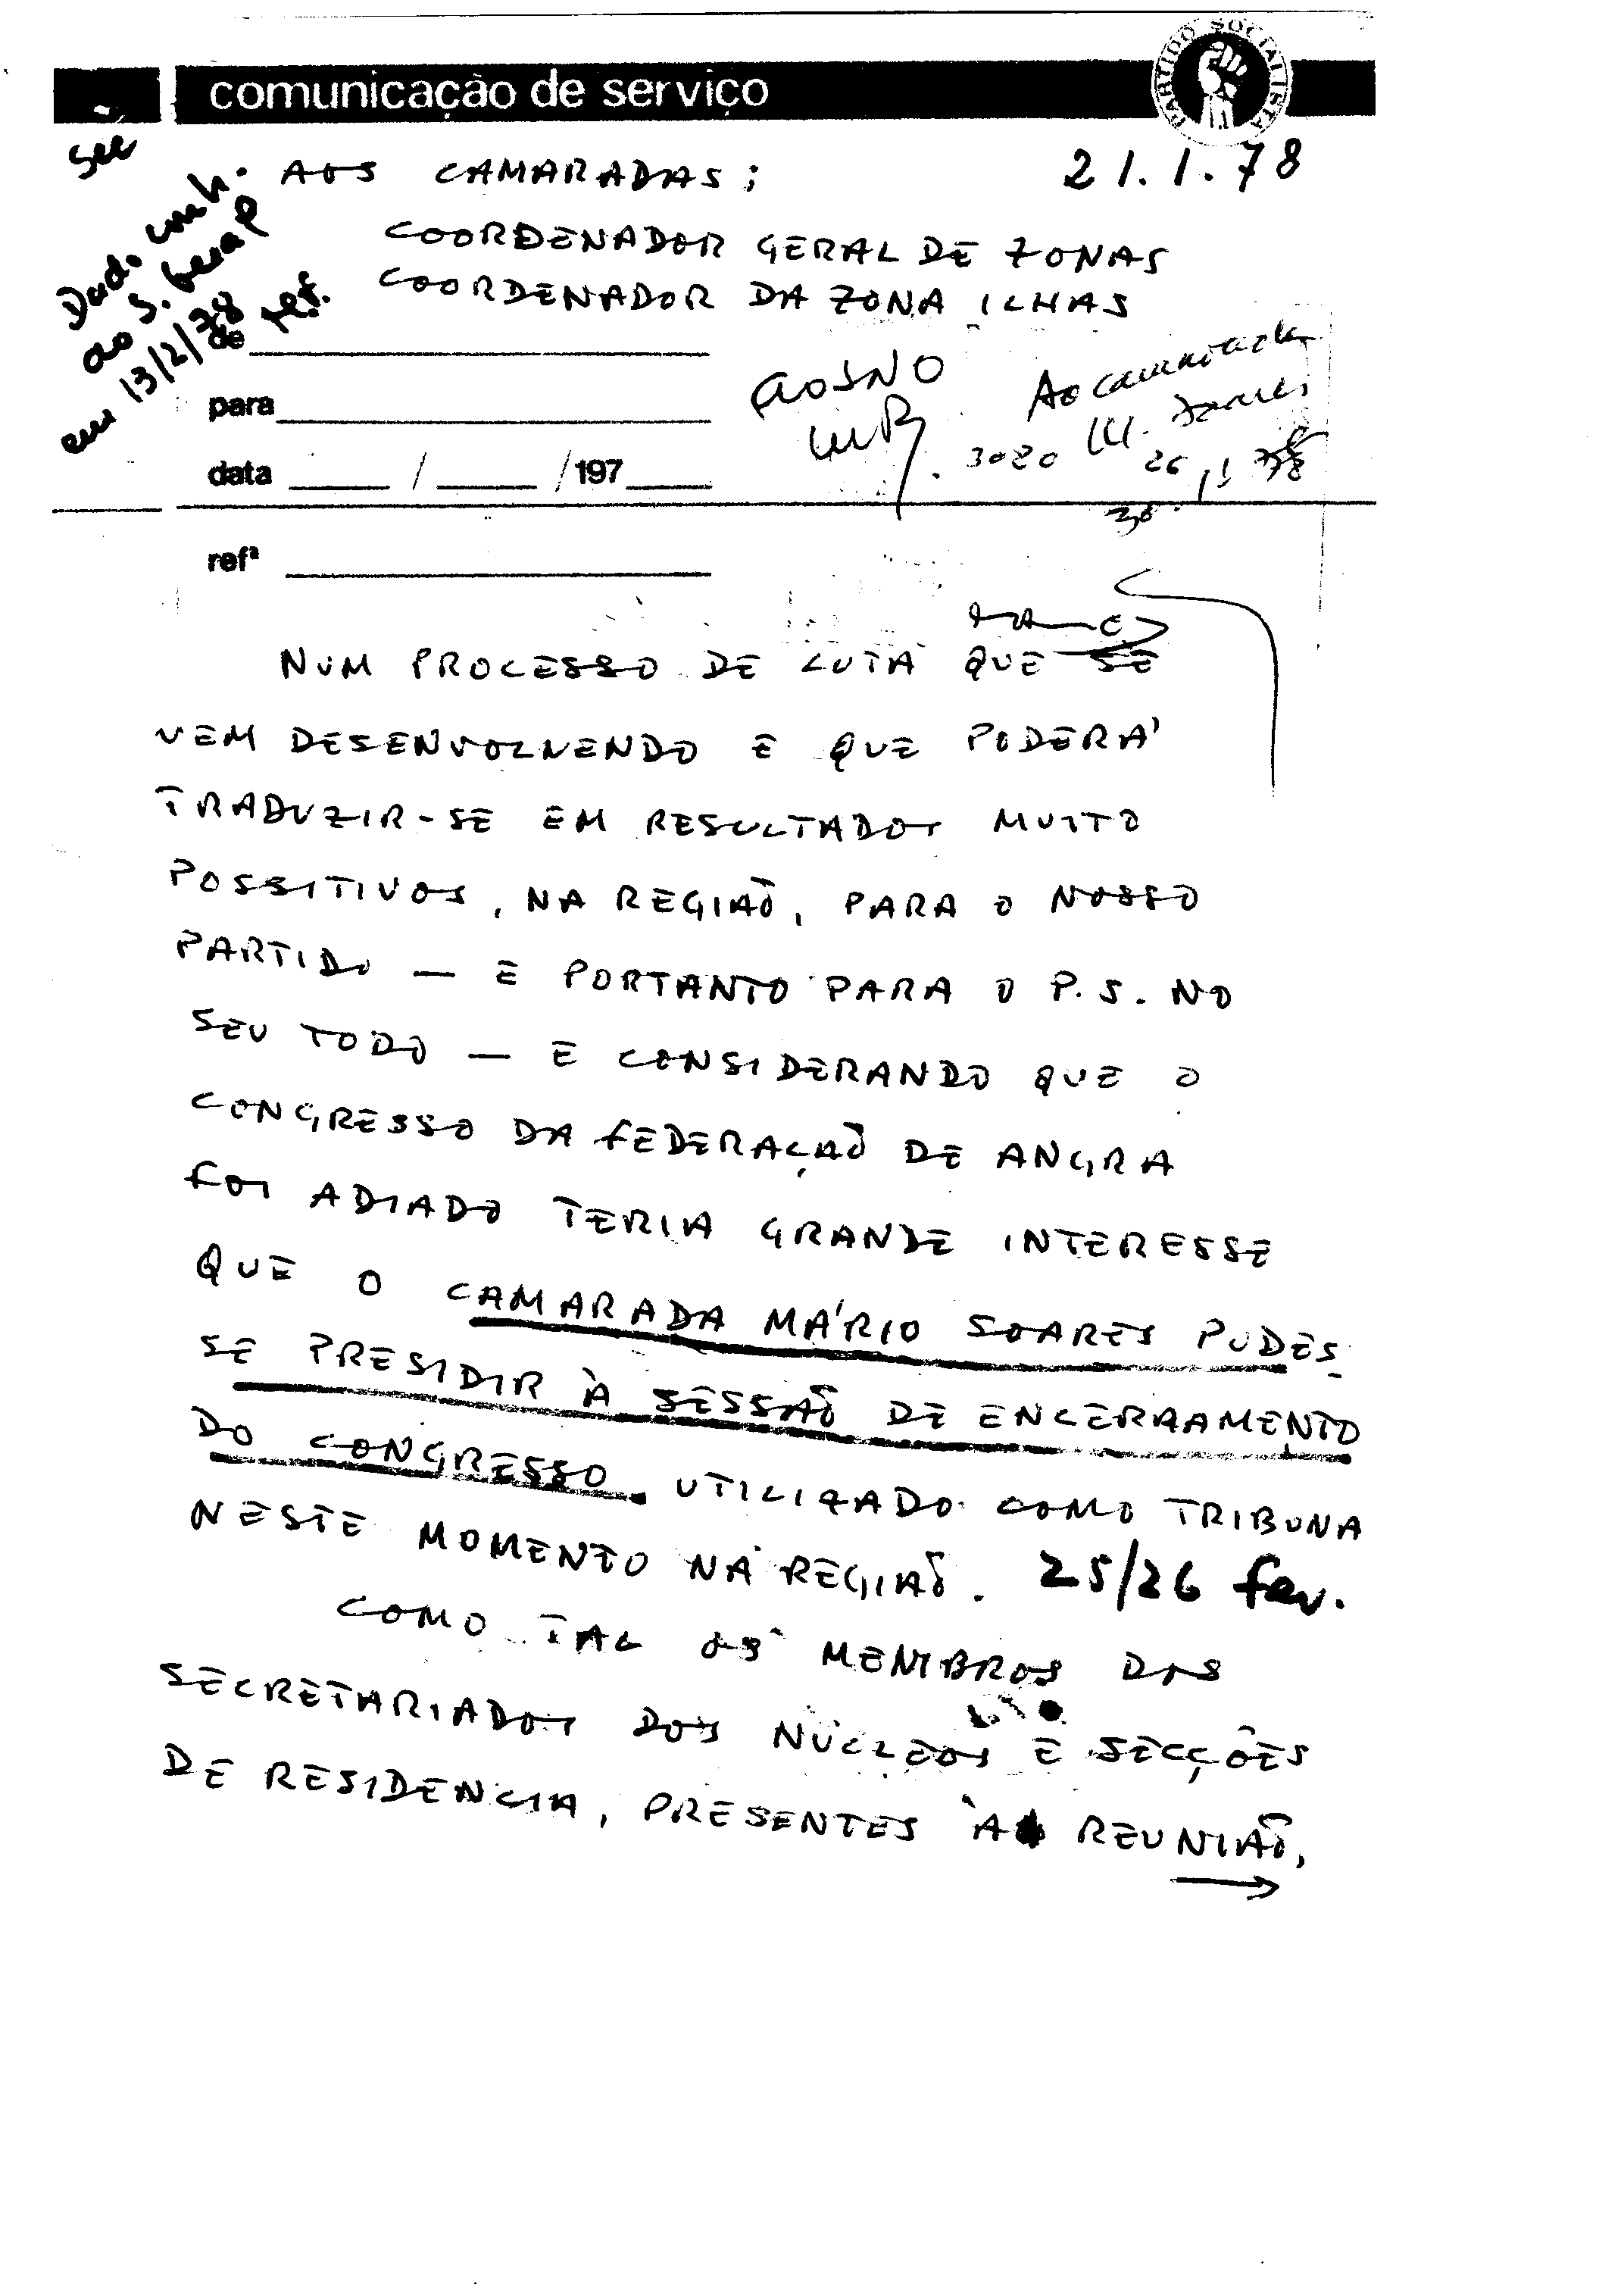 PARTIDO SOCIALISTA
comunicação de serviço
21.1.78
AOS CAMARADAS;
COORDENADOR GERAL DE ZONAS
COORDENADOR DA ZONA ILHAS
Dado conh.
ao S. Geral
em 13/2/78 tef.
de
para
data / / 197
refª
Ao camarada
M. Soares
3020
NUM PROCESSO DE LUTA QUE SE
VEM DESENVOLVENDO E QUE PODERÁ
TRADUZIR-SE EM RESULTADOS MUITO
POSSITIVOS, NA REGIAÕ, PARA O NOSSO
PARTIDO — E PORTANTO PARA O P.S. NO
SEU TODO — E CONSIDERANDO QUE O
CONGRESSO DA FEDERAÇAÕ DE ANGRA
FOI ADIADO TERIA GRANDE INTERESSE
QUE O CAMARADA MÁRIO SOARES PUDES-
SE PRESIDIR À SESSAÕ DE ENCERRAMENTO
DO CONGRESSO. UTILIZADO COMO TRIBUNA
NESTE MOMENTO NA REGIAÕ. 25/26 fev.
COMO TAL OS MEMBROS DOS
SECRETARIADOS DOS NÚCLEOS E SECÇÕES
DE RESIDENCIA, PRESENTES À REUNIAÕ,